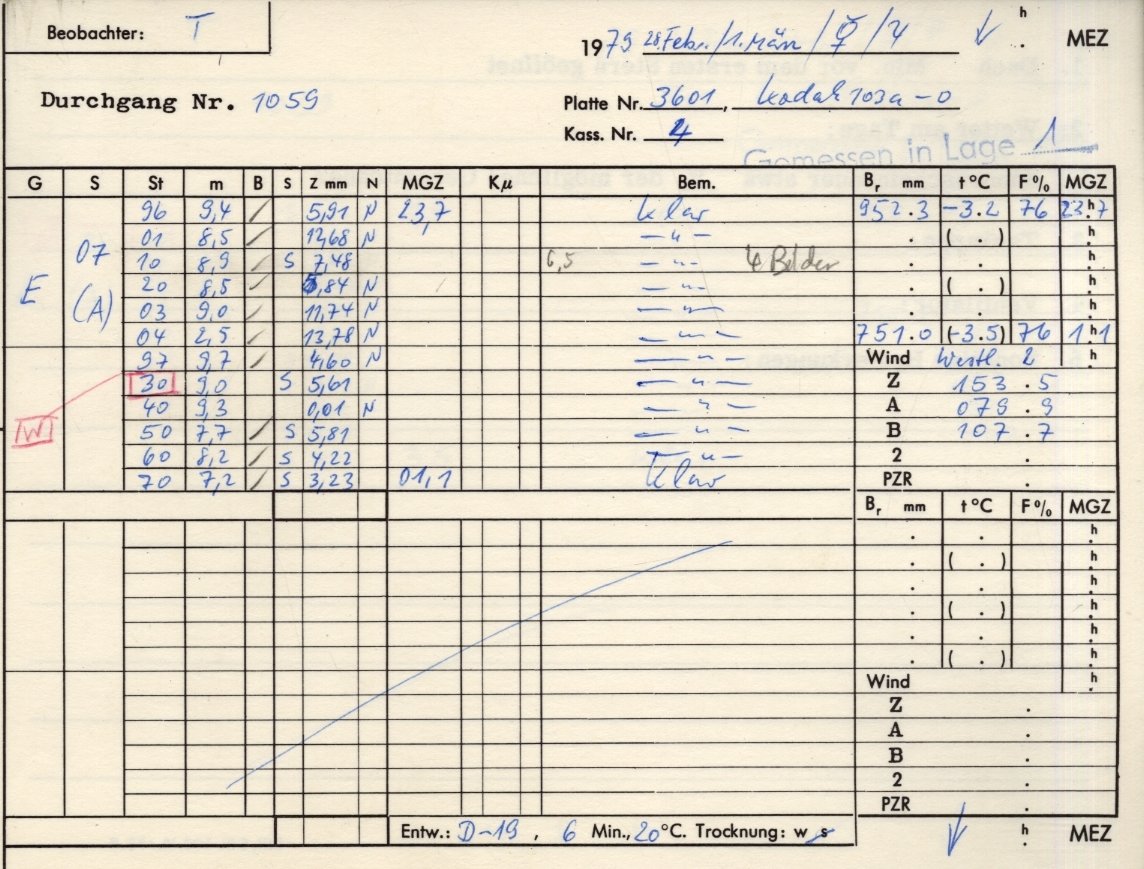 Beobachter: T
1979 28 Febr./1. März / ♀ / 4 h . MEZ
Durchgang Nr. 1059
Platte Nr. 3601, Kodak 103a-O
Kass. Nr. 4
Gemessen in Lage 1
G S St m B S Z mm N MGZ Kμ Bem. Br mm t °C F % MGZ
96 9,4 / 5,91 N 23,7 klar 952.3 -3.2 76 23.h7
01 8,5 / 12,68 N —"— . ( . ) h
07 10 8,9 / S 7,48 6,5 —"— 4 Bilder . . h
E 20 8,5 / 5,84 N —"— . ( . ) h
(A) 03 9,0 / 11,74 N —"— . . h
04 2,5 / 13,78 N —"— 751.0 (-3.5) 76 1h1
97 9,7 / 4,60 N —"— Wind Westl. 2 h
30 9,0 S 5,61 —"— Z 153.5
40 9,3 0,01 N —"— A 079.9
W 50 7,7 / S 5,81 —"— B 107.7
60 8,2 / S 4,22 —"— 2 .
70 7,2 / S 3,23 01,1 klar PZR .
Br mm t °C F % MGZ
. . h
. ( . ) h
. . h
. ( . ) h
. . h
. ( . ) h
Wind h
Z .
A .
B .
2 .
PZR .
Entw.: D-19, 6 Min., 20°C. Trocknung: w s h . MEZ